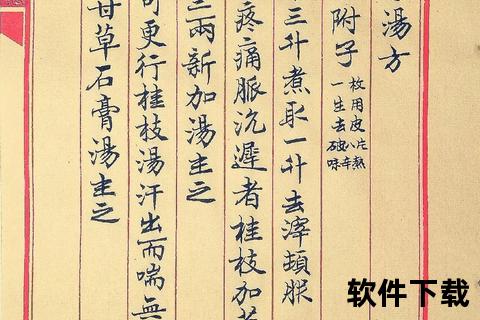 湯方
附子一枚生用去皮破八片味辛熱
三升煮取一升去滓頓服
疼痛脈沉遲者桂枝加
三兩新加湯主之
可更行桂枝湯汗出而喘無
甘草石膏湯主之
软件下载